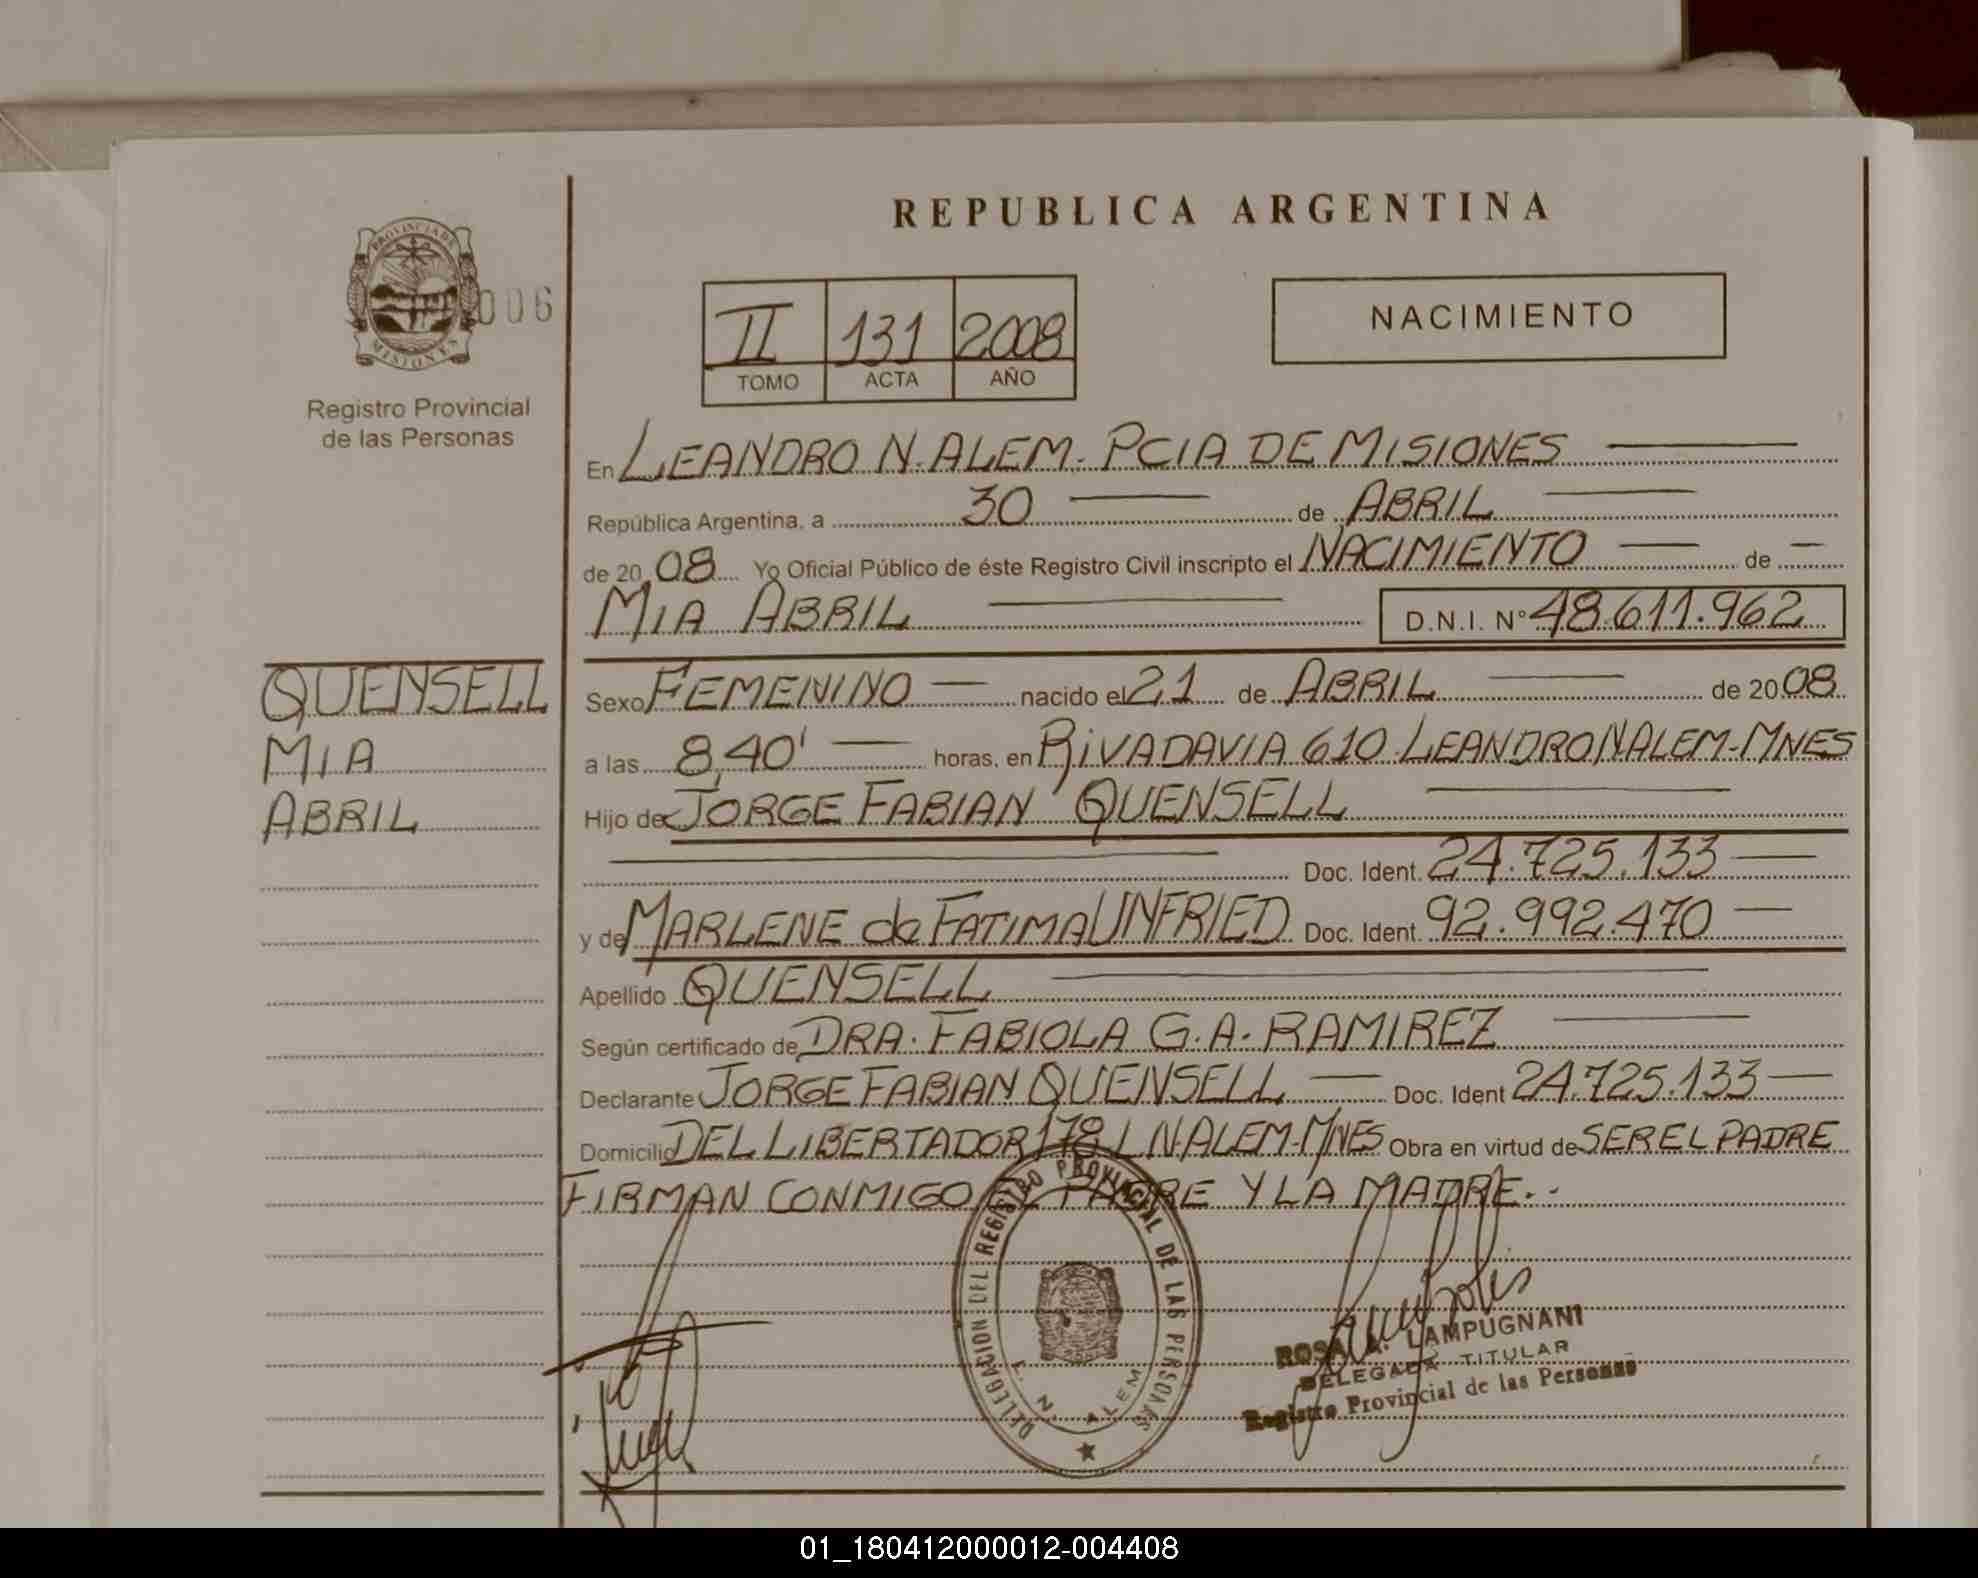 REPUBLICA ARGENTINA
PROVINCIA DE
MISIONES
006
Registro Provincial
de las Personas
II 131 2008
TOMO ACTA AÑO
NACIMIENTO
En LEANDRO N. ALEM - PCIA DE MISIONES
República Argentina, a 30 de ABRIL
de 2008 Yo Oficial Público de éste Registro Civil inscripto el NACIMIENTO de
MIA ABRIL D.N.I. N° 48.611.962
QUENSELL
MIA
ABRIL
Sexo FEMENINO nacido el 21 de ABRIL de 2008
a las 8,40' horas, en RiVADAVIA 610 LEANDRO N ALEM - MNES
Hijo de JORGE FABIAN QUENSELL
Doc. Ident. 24.725.133
y de MARLENE de FATIMA UNFRIED Doc. Ident. 92.992.470
Apellido QUENSELL
Según certificado de DRA. FABIOLA G. A. RAMIREZ
Declarante JORGE FABIAN QUENSELL Doc. Ident 24.725.133
Domicilio DEL LIBERTADOR 178 L N. ALEM - MNES Obra en virtud de SER EL PADRE
FIRMAN CONMIGO PADRE Y LA MADRE. -
DELEGACION DEL REGISTRO PROVINCIAL DE LAS PERSONAS
L. N. ALEM
ROSA LAMPUGNANI
DELEGADA TITULAR
Registro Provincial de las Personas
01_180412000012-004408